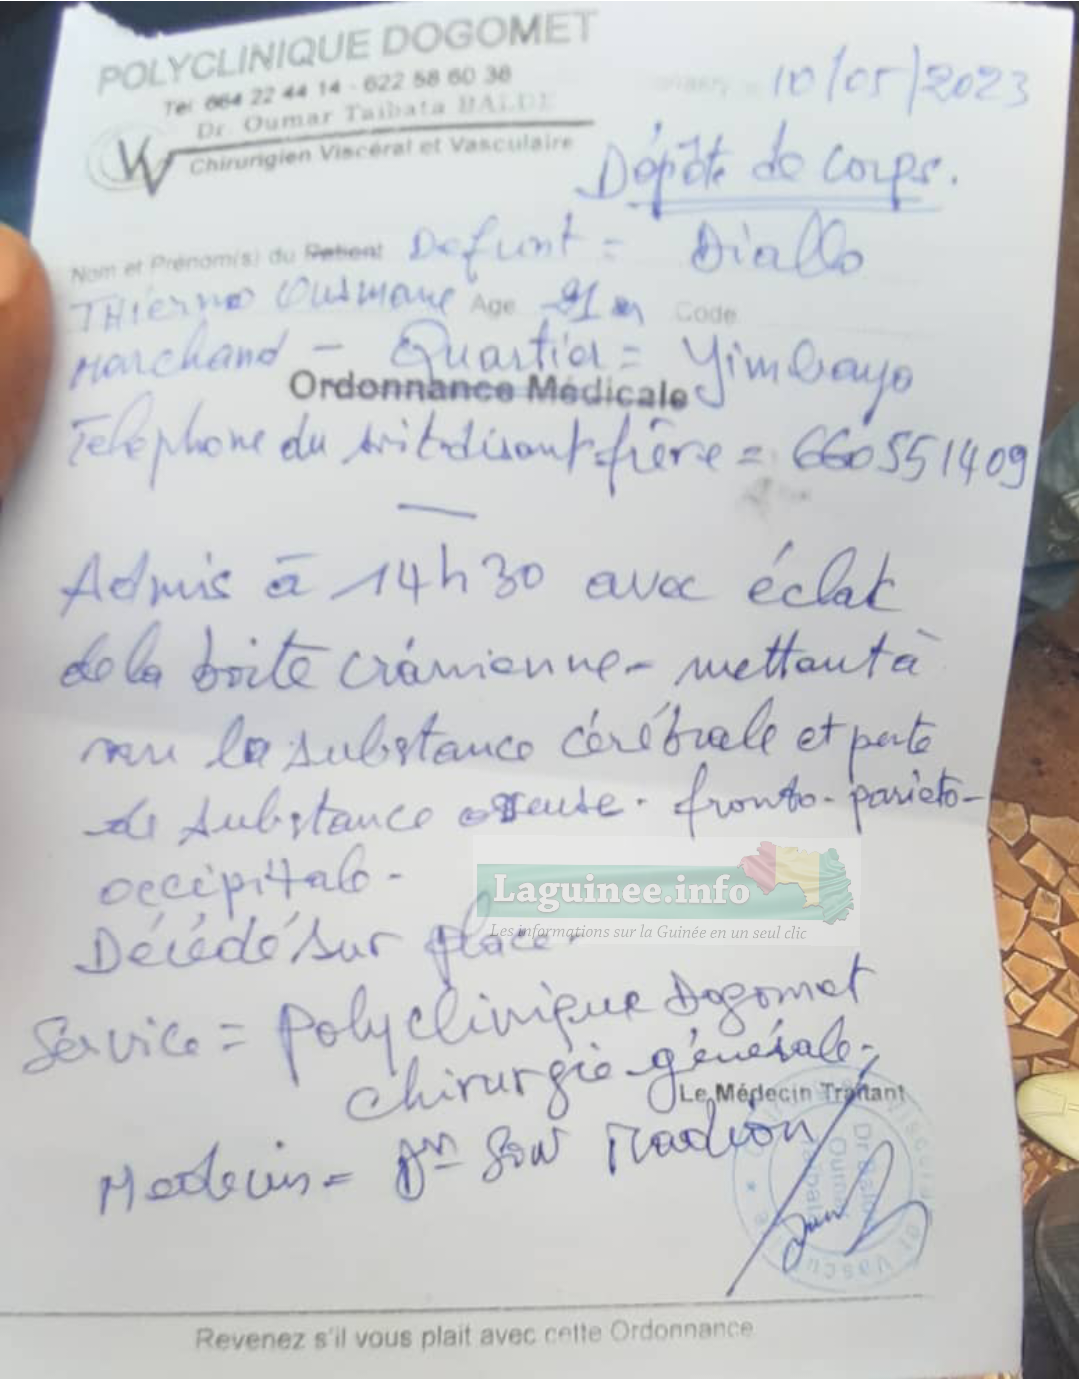 POLYCLINIQUE DOGOMET
Tel 664 22 44 14 - 622 58 60 38
Dr. Oumar Taibata BALDE
Chirurigien Viscéral et Vasculaire
10/05/2023
Dépôte de Corps.
Nom et Prénom(s) du Patient Defunt = Diallo
THierno Ousmane Age 21 Code
Marchand - Quartier = Yimbaya
Ordonnance Médicale
Telephone du soit-disant frère = 660551409
Admis à 14h30 avec éclat
de la boite crânienne - mettant à
nu la substance cérébrale et perte
de substance osseuse. fronto-parieto-
occipitale.
Laguinee.info
Les informations sur la Guinée en un seul clic
Décédé sur place.
Service = Polyclinique Dogomet
Chirurgie générale.
Le Médecin Traitant
Medecin = Dr Sow Madiou
Revenez s'il vous plait avec cette Ordonnance